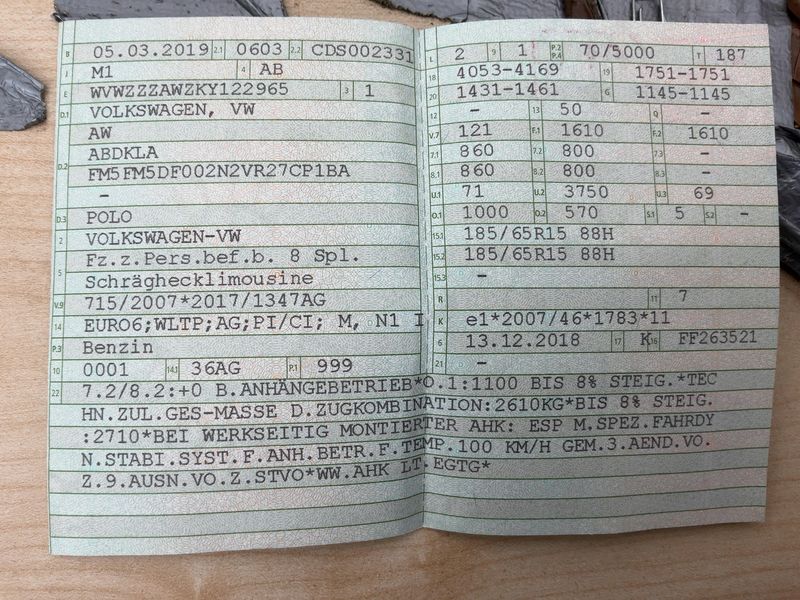 B 05.03.2019 2.1 0603 2.2 CDS002331
J M1 4 AB
E WVWZZZAWZKY122965 3 1
D.1 VOLKSWAGEN, VW
AW
ABDKLA
D.2 FM5FM5DF002N2VR27CP1BA
–
D.3 POLO
2 VOLKSWAGEN-VW
Fz.z.Pers.bef.b. 8 Spl.
5 Schräghecklimousine
V.9 715/2007*2017/1347AG
14 EURO6;WLTP;AG;PI/CI; M, N1 I
P.3 Benzin
10 0001 14.1 36AG P.1 999
L 2 9 1 P.2 P.4 70/5000 T 187
18 4053-4169 19 1751-1751
20 1431-1461 G 1145-1145
12 – 13 50 Q –
V.7 121 F.1 1610 F.2 1610
7.1 860 7.2 800 7.3 –
8.1 860 8.2 800 8.3 –
U.1 71 U.2 3750 U.3 69
O.1 1000 O.2 570 S.1 5 S.2 –
15.1 185/65R15 88H
15.2 185/65R15 88H
15.3 –
R 11 7
K e1*2007/46*1783*11
6 13.12.2018 17 K 16 FF263521
21 –
22 7.2/8.2:+0 B.ANHÄNGEBETRIEB*O.1:1100 BIS 8% STEIG.*TEC
HN.ZUL.GES-MASSE D.ZUGKOMBINATION:2610KG*BIS 8% STEIG.
:2710*BEI WERKSEITIG MONTIERTER AHK: ESP M.SPEZ.FAHRDY
N.STABI.SYST.F.ANH.BETR.F.TEMP.100 KM/H GEM.3.AEND.VO.
Z.9.AUSN.VO.Z.STVO*WW.AHK LT.EGTG*